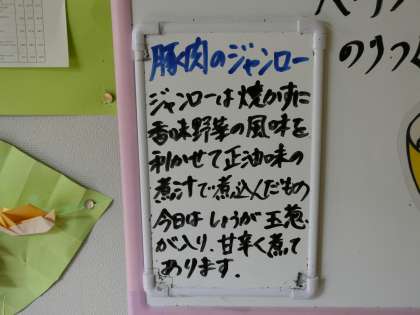 豚肉のジャンロー
ジャンローは焼かずに
香味野菜の風味を
利かせて正油味の
煮汁で煮込んだもの
今日はしょうが玉葱
が入り、甘辛く煮て
あります.